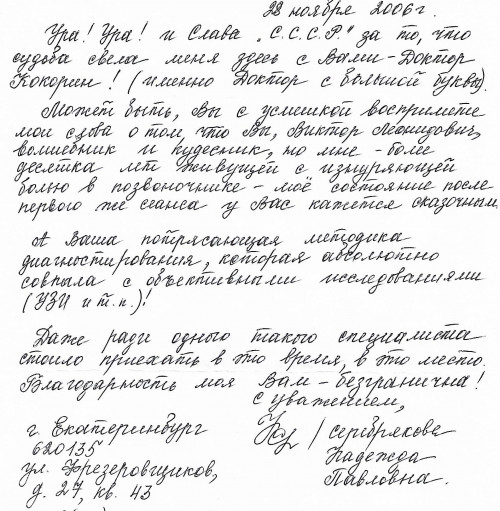 22 ноября 2006 г.
Ура! Ура! и Слава „С.С.С.Р." за то, что
судьба свела меня здесь с Вами – Доктор
Кокорин! (именно Доктор с большой буквы).
Может быть, Вы с усмешкой воспримете
мои слова о том, что Вы, Виктор Леонидович,
волшебник и кудесник, но мне – более
десятка лет живущей с изнуряющей
болью в позвоночнике – моё состояние после
первого же сеанса у Вас кажется сказочным.
А Ваша потрясающая методика
диагностирования, которая абсолютно
совпала с объективными исследованиями
(УЗИ и т.п.)!
Даже ради одного такого специалиста
стоило приехать в это время, в это место.
Благодарность моя Вам – безгранична!
с уважением,
г. Екатеринбург
620135
ул. Фрезеровщиков,
д. 27, кв. 43
/ Серебрякова
Надежда
Павловна.